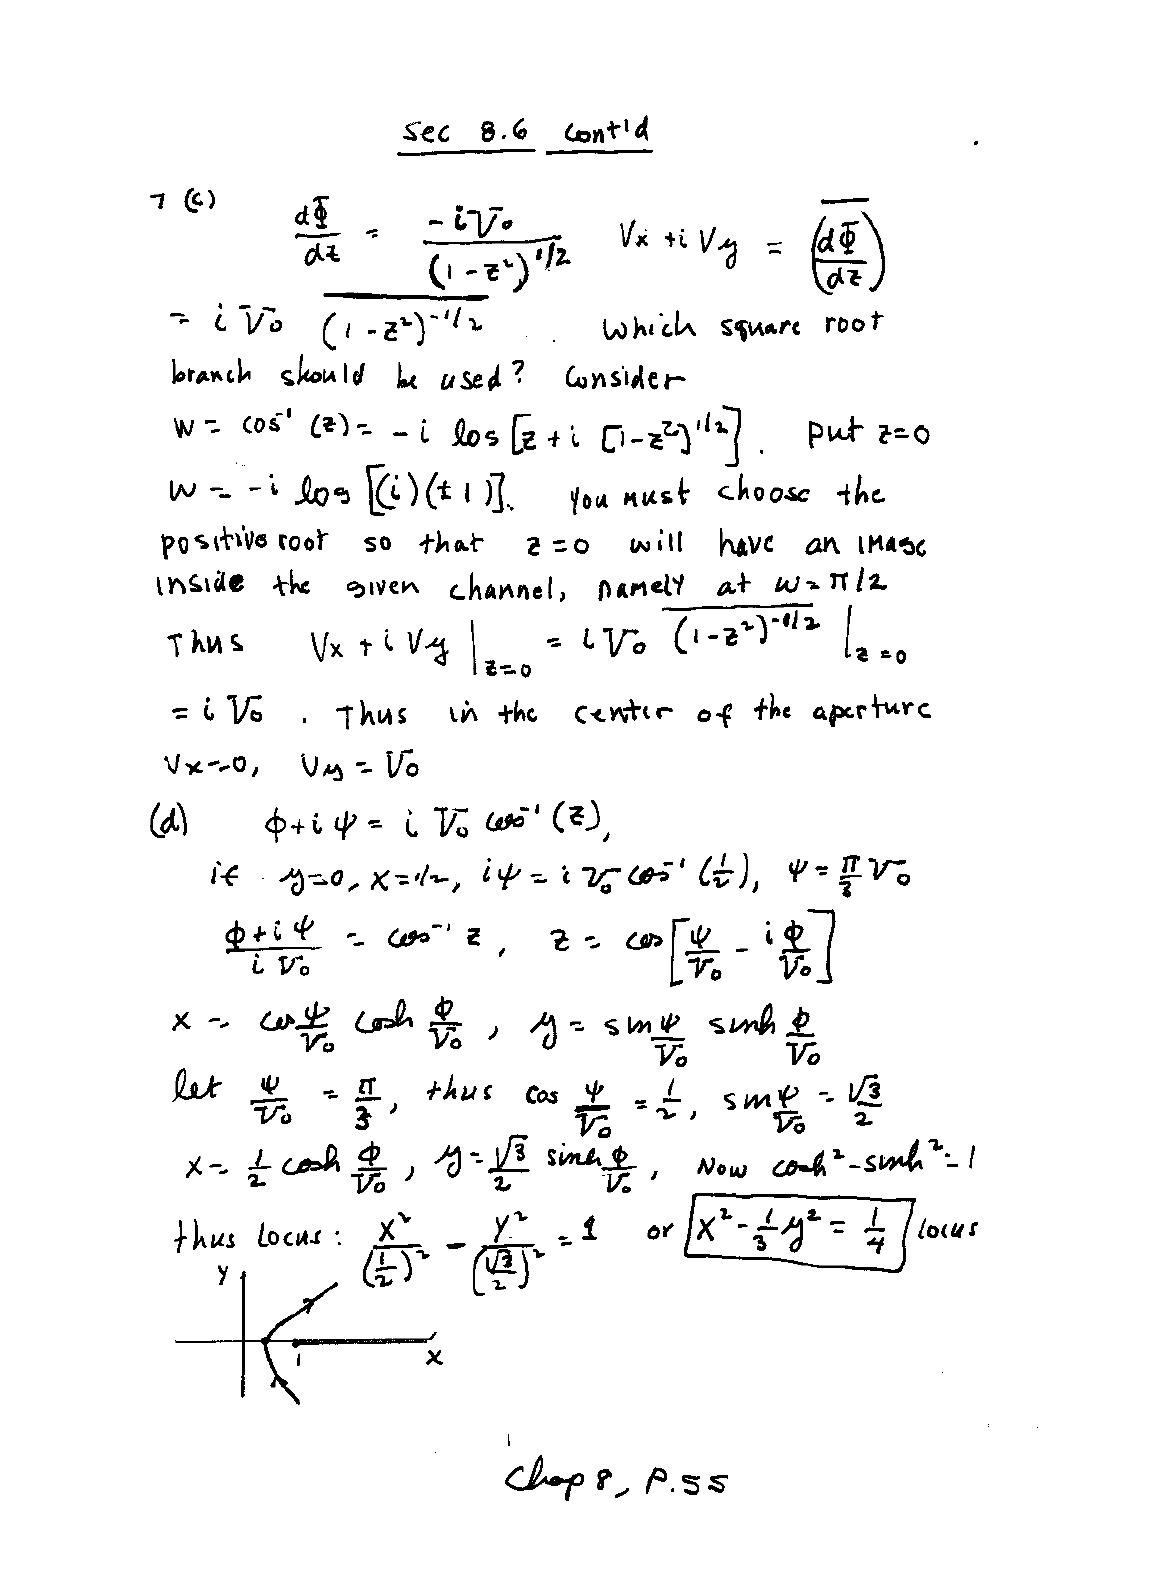 Sec 8.6 cont'd
7 (c) dΦ/dz = -iV₀/(1-z²)^{1/2} Vx + i Vy = \overline{(dΦ/dz)}
= i V₀ \overline{(1-z²)^{-1/2}} . Which square root
branch should be used? Consider
w = cos⁻¹(z) = -i log[z + i [1-z²]^{1/2}]. put z=0
w = -i log[(i)(±1)]. You must choose the
positive root so that z=0 will have an image
inside the given channel, namely at w=π/2
Thus Vx + i Vy |_{z=0} = i V₀ \overline{(1-z²)^{-1/2}} |_{z=0}
= i V₀ . Thus in the center of the aperture
Vx=0, Vy = V₀
(d) ϕ+iψ = i V₀ cos⁻¹(z),
if y=0, x=1/2, iψ = i V₀ cos⁻¹(1/2), ψ = π/3 V₀
(ϕ+iψ)/(i V₀) = cos⁻¹ z, z = cos[ψ/V₀ - iϕ/V₀]
x = cos ψ/V₀ cosh ϕ/V₀, y = sin ψ/V₀ sinh ϕ/V₀
let ψ/V₀ = π/3, thus cos ψ/V₀ = 1/2, sin ψ/V₀ = √3/2
x = 1/2 cosh ϕ/V₀, y = √3/2 sinh ϕ/V₀, Now cosh²-sinh²=1
thus locus: x²/(1/2)² - y²/(√3/2)² = 1 or x² - 1/3 y² = 1/4 locus
y
1 x
Chap 8, P.55